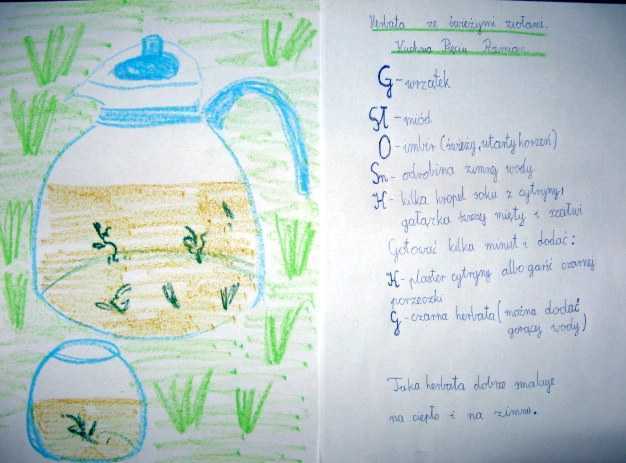 Herbata ze świeżymi ziołami.
Kuchnia Pięciu Przemian
G - wrzątek
Sł - miód
O - imbir (świeży, utarty korzeń)
Sm - odrobina zimnej wody
K - kilka kropel soku z cytryny,
gałązka świeżej mięty i szałwi
Gotować kilka minut i dodać:
K - plaster cytryny albo garść czarnej
porzeczki
G - czarna herbata (można dodać
gorącej wody)
Taka herbata dobrze smakuje
na ciepło i na zimno.